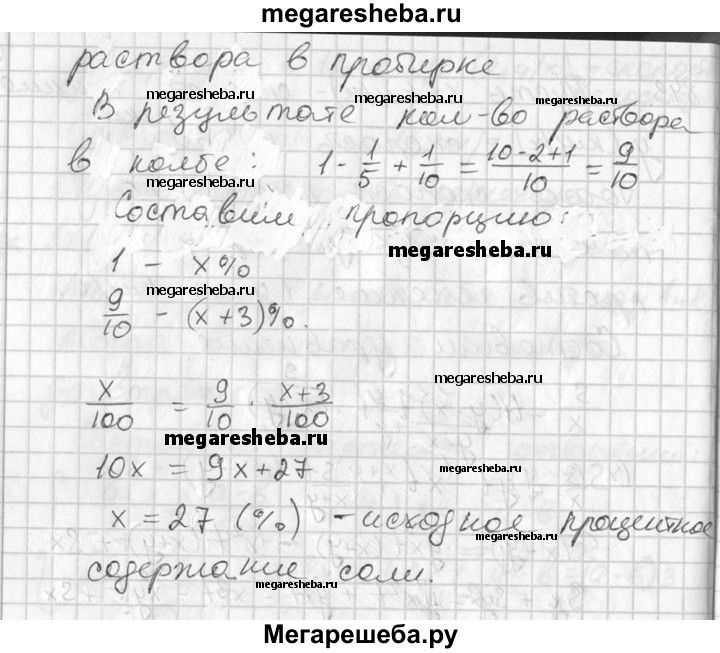 megaresheba.ru
раствора в пробирке
megaresheba.ru megaresheba.ru megaresheba.ru
В результате кол-во раствора
в колбе: 1 - 1/5 + 1/10 = (10-2+1)/10 = 9/10
megaresheba.ru
Составим пропорцию:
megaresheba.ru
1 - x%
megaresheba.ru
9/10 - (x+3)%.
megaresheba.ru
x/100 = 9/10 · (x+3)/100
megaresheba.ru
10x = 9x+27
megaresheba.ru
x = 27 (%) - исходное процентное
megaresheba.ru
содержание соли.
megaresheba.ru megaresheba.ru
Мегарешеба.ру